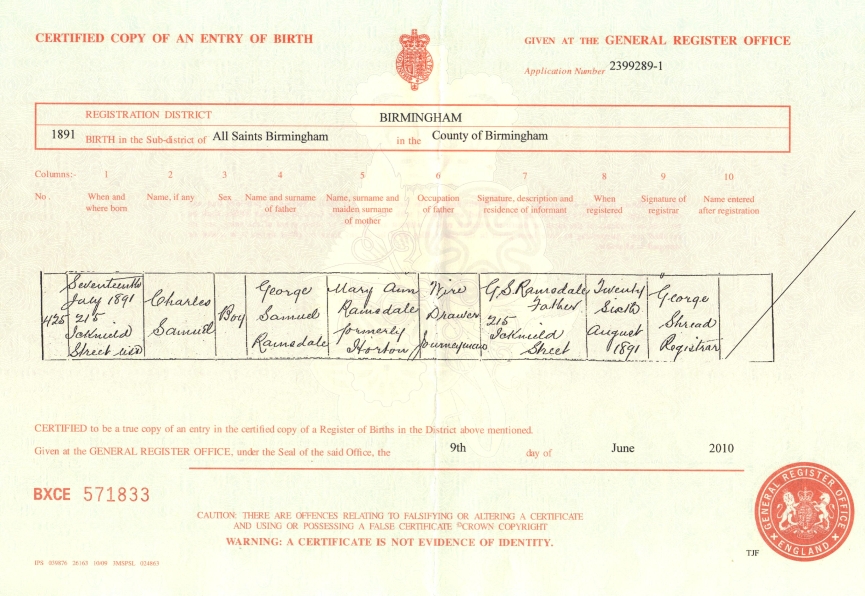 CERTIFIED COPY OF AN ENTRY OF BIRTH
GIVEN AT THE GENERAL REGISTER OFFICE
Application Number 2399289-1
REGISTRATION DISTRICT BIRMINGHAM
1891 BIRTH in the Sub-district of All Saints Birmingham in the County of Birmingham
Columns:- 1 2 3 4 5 6 7 8 9 10
No. When and where born Name, if any Sex Name and surname of father Name, surname and maiden surname of mother Occupation of father Signature, description and residence of informant When registered Signature of registrar Name entered after registration
425
Seventeenth
July 1891
215
Icknield
Street
Charles
Samuel
Boy
George
Samuel
Ramsdale
Mary Ann
Ramsdale
formerly
Horton
Wire
Drawer
Journeyman
G.S. Ramsdale
Father
215
Icknield
Street
Twenty
Sixth
August
1891
George
Shread
Registrar
CERTIFIED to be a true copy of an entry in the certified copy of a Register of Births in the District above mentioned.
Given at the GENERAL REGISTER OFFICE, under the Seal of the said Office, the 9th day of June 2010
BXCE 571833
CAUTION: THERE ARE OFFENCES RELATING TO FALSIFYING OR ALTERING A CERTIFICATE
AND USING OR POSSESSING A FALSE CERTIFICATE ©CROWN COPYRIGHT
WARNING: A CERTIFICATE IS NOT EVIDENCE OF IDENTITY.
GENERAL REGISTER OFFICE
ENGLAND
TJF